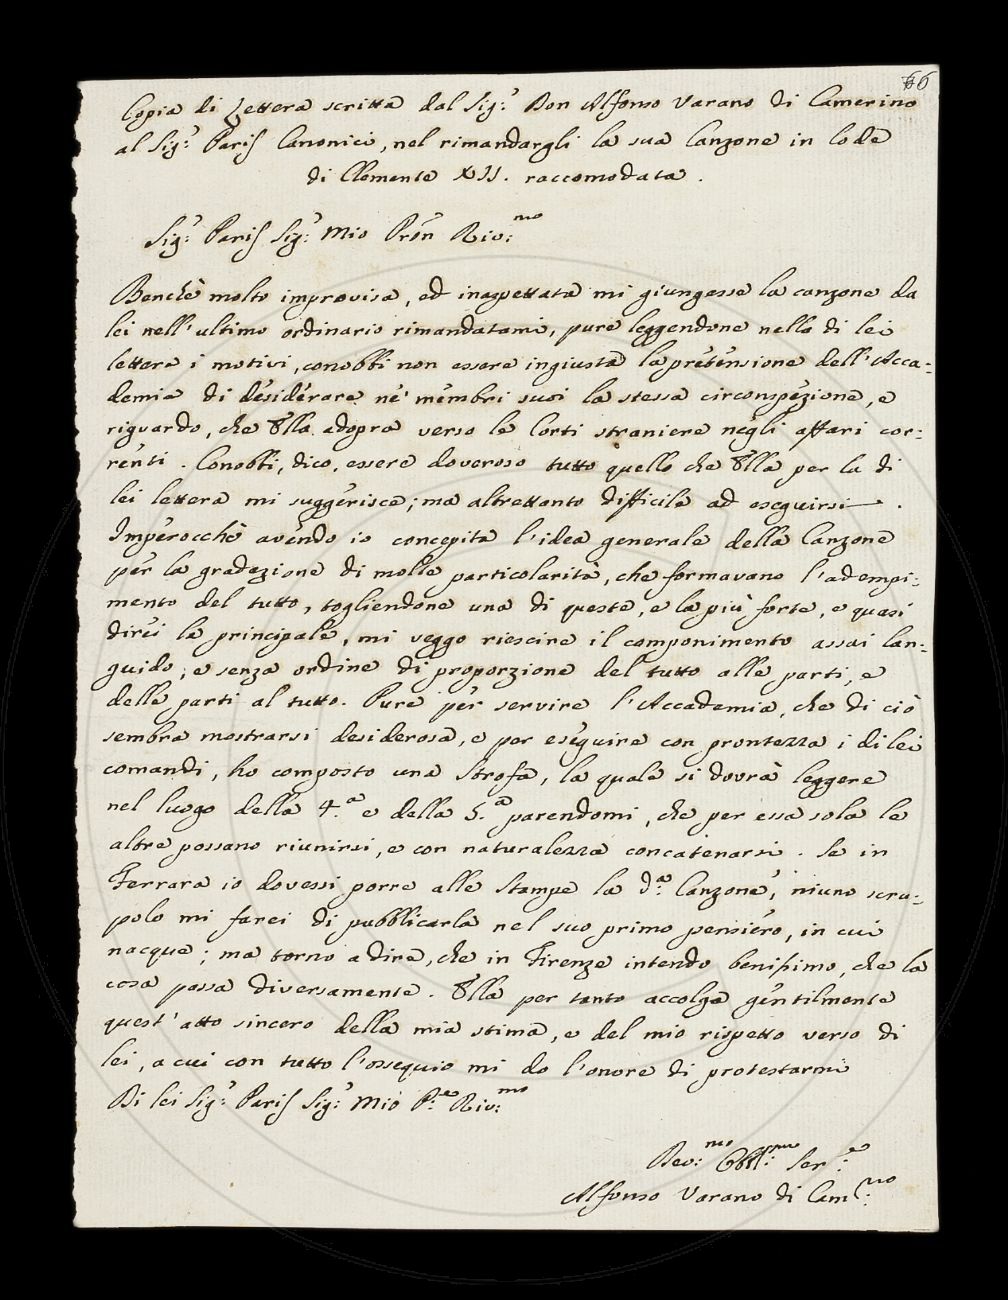 66
Copia di Lettera scritta dal Sig.r Don Alfonso Varano di Camerino
al Sig.r Paris Canonici, nel rimandargli la sua Canzone in lode
di Clemente XII. raccomodata.
Sig.r Paris Sig.r Mio Prōn Riv.mo
Benchè molto improvisa, ed inaspettata mi giungesse la canzone da
lei nell'ultimo ordinario rimandatami, pure leggendone nella di lei
lettera i motivi, conobbi non essere ingiusta la pretensione dell'Acca=
demia di desiderare ne' membri suoi la stessa circonspezione, e
riguardo, che Ella adopra verso le Corti straniere negli affari cor=
renti. Conobbi, dico, essere doveroso tutto quello che Ella per la di
lei lettera mi suggerisce; ma altrettanto difficile ad eseguirsi.
Imperocchè avendo io concepita l'idea generale della Canzone
per la gradazione di molte particolarità, che formavano l'adempi=
mento del tutto, togliendone una di queste, e la più forte, e quasi
direi la principale, mi veggo riescire il componimento assai lan=
guido, e senza ordine di proporzione del tutto alle parti, e
delle parti al tutto. Pure per servire l'Accademia, che di ciò
sembra mostrarsi desiderosa, e per eseguire con prontezza i di lei
comandi, ho composto una Strofa, la quale si dovrà leggere
nel luogo della 4.a e della 5.a parendomi, che per essa sola le
altre possano riunirsi, e con naturalezza concatenarsi. Se in
Ferrara io dovessi porre alle Stampe la d.a Canzone, niuno scru=
polo mi farei di pubblicarla nel suo primo pensiero, in cui
nacque; ma torno a dire, che in Firenze intendo benissimo, che la
cosa passa diversamente. Ella per tanto accolga gentilmente
quest'atto sincero della mia stima, e del mio rispetto verso di
lei, a cui con tutto l'ossequio mi do l'onore di protestarmi
Di lei Sig.r Paris Sig.r Mio P.ne Riv.mo
Dev.mo Obbl.mo Ser.e
Alfonso Varano di Cam.no